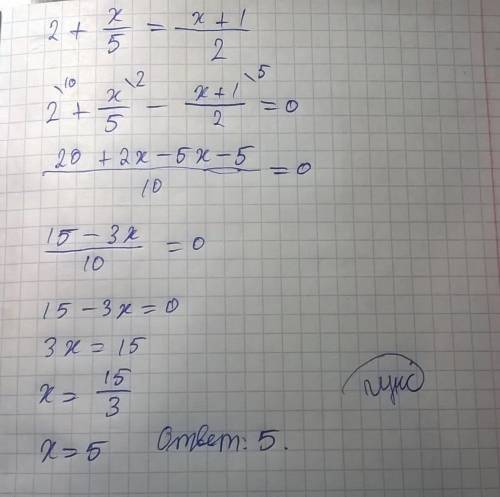 2 + x/5 = (x+1)/2
2\10 + x/5\2 − (x+1)/2\5 = 0
(20 + 2x − 5x − 5)/10 = 0
(15 − 3x)/10 = 0
15 − 3x = 0
3x = 15
x = 15/3
x = 5 Ответ: 5.